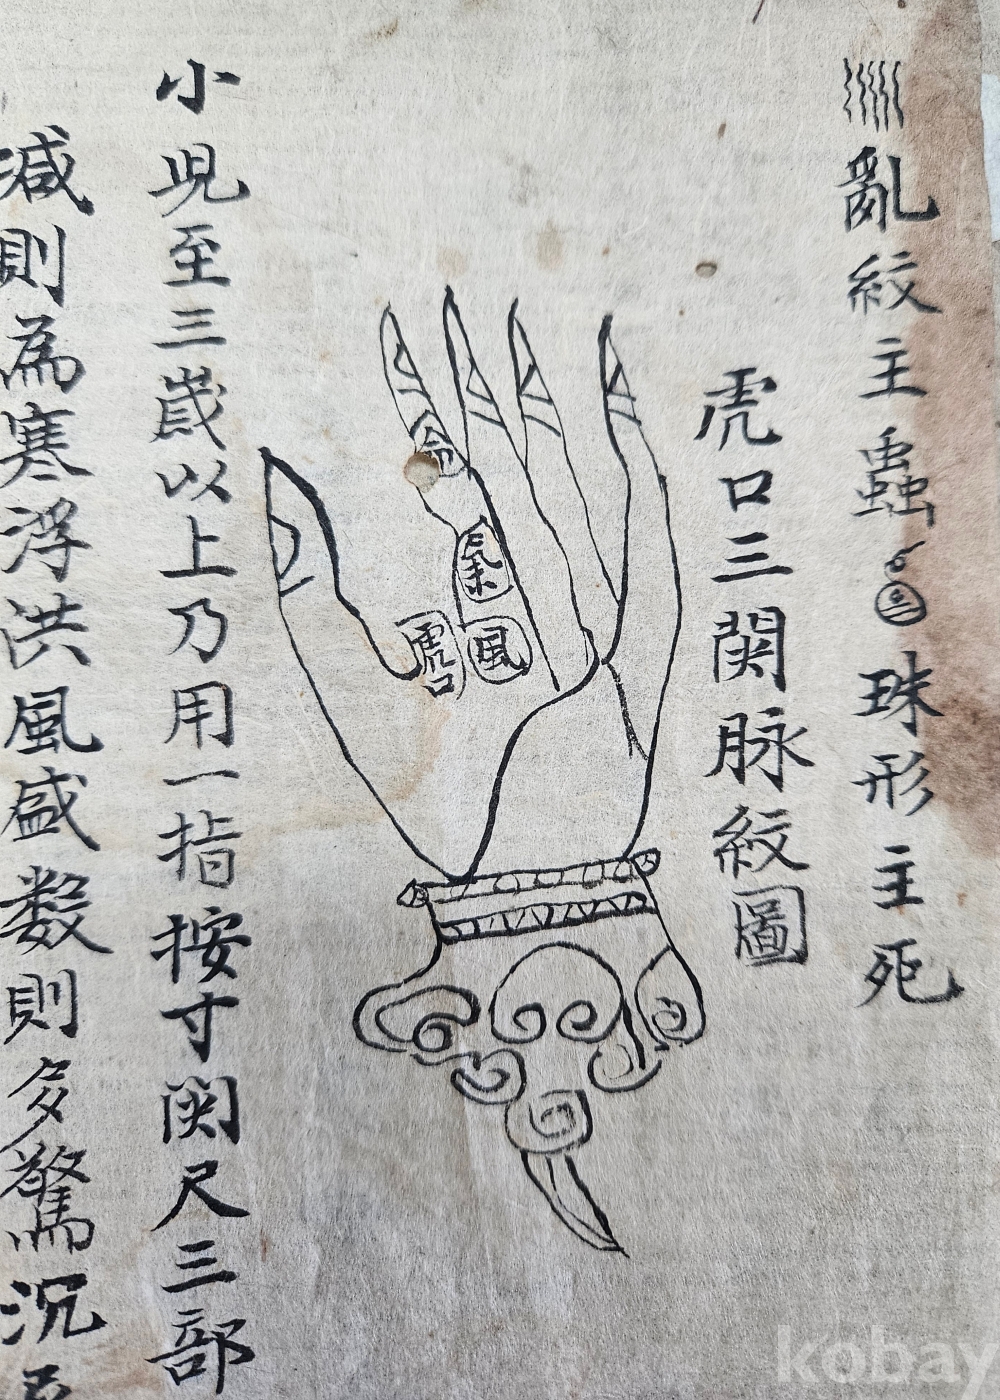 亂紋主蟲 珠形主死
虎口三関脉紋圖
命
氣
風
虎口
小児至三歲以上乃用一指按寸関尺三部
減則為寒浮洪風盛数則多驚沉
kobay